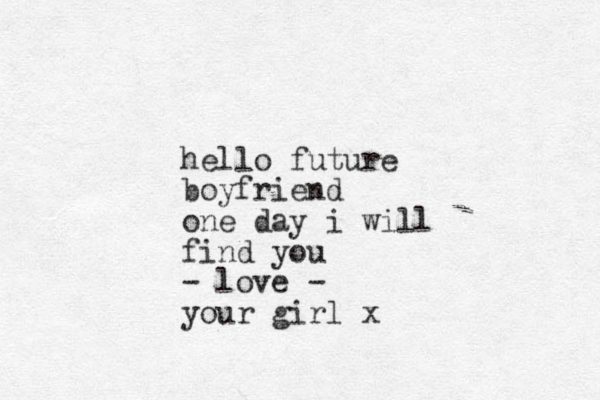 hello future
boyfriend
one day i will
find you
- love -
your girl x